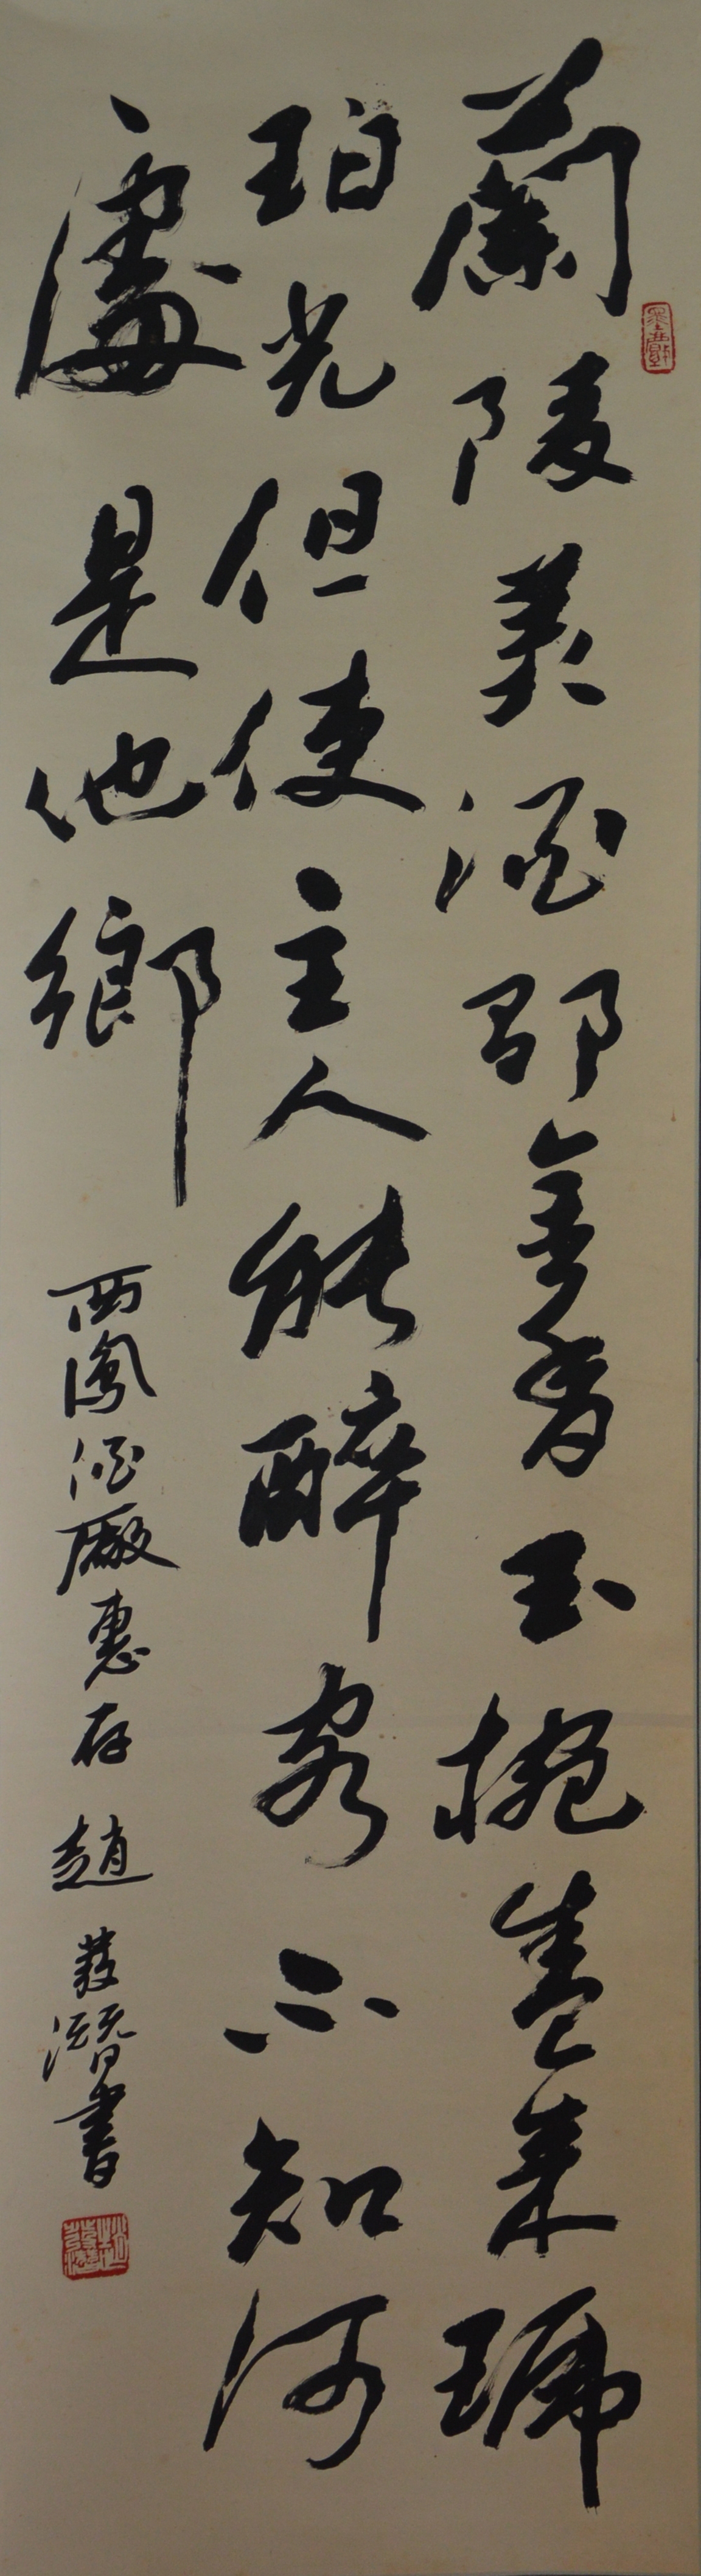 蘭陵美酒郁金香玉椀盛來琥
珀光但使主人能醉客不知何
處是他鄉
西鳳酒廠惠存 趙發潛書
墨戲